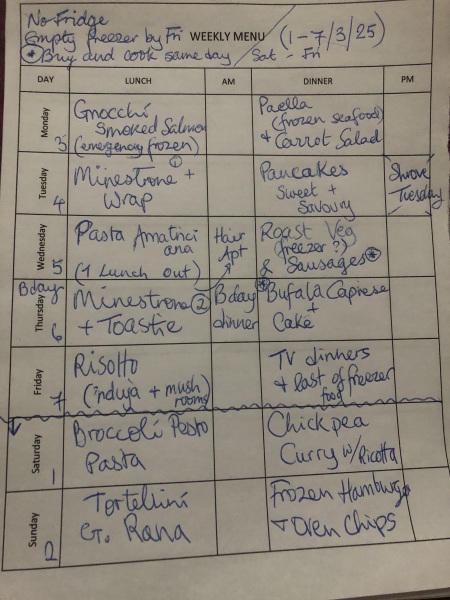 No Fridge
Empty freezer by Fri WEEKLY MENU (1-7/3/25)
* Buy and cook same day Sat - Fri
DAY LUNCH AM DINNER PM
Monday 3
Gnocchi
Smoked Salmon
(emergency frozen)
Paella
(frozen seafood)
+ Carrot Salad
Tuesday 4
Minestrone ① +
Wrap
Pancakes
Sweet +
Savoury
Shrove
Tuesday
Wednesday 5
Pasta Amatrici
ana
(1 Lunch out)
Hair
Apt
Roast Veg
(freezer?)
& Sausages *
Bday
Thursday 6
Minestrone ②
+ Toastie
Bday
dinner
* Bufala Caprese
+
Cake
Friday 7
Risotto
(induja + mush
rooms)
TV dinners
+ last of freezer
food
Saturday 1
Broccoli Pesto
Pasta
Chickpea
Curry w/Ricotta
Sunday 2
Tortellini
G. Rana
Frozen Hamburger
+ Oven Chips